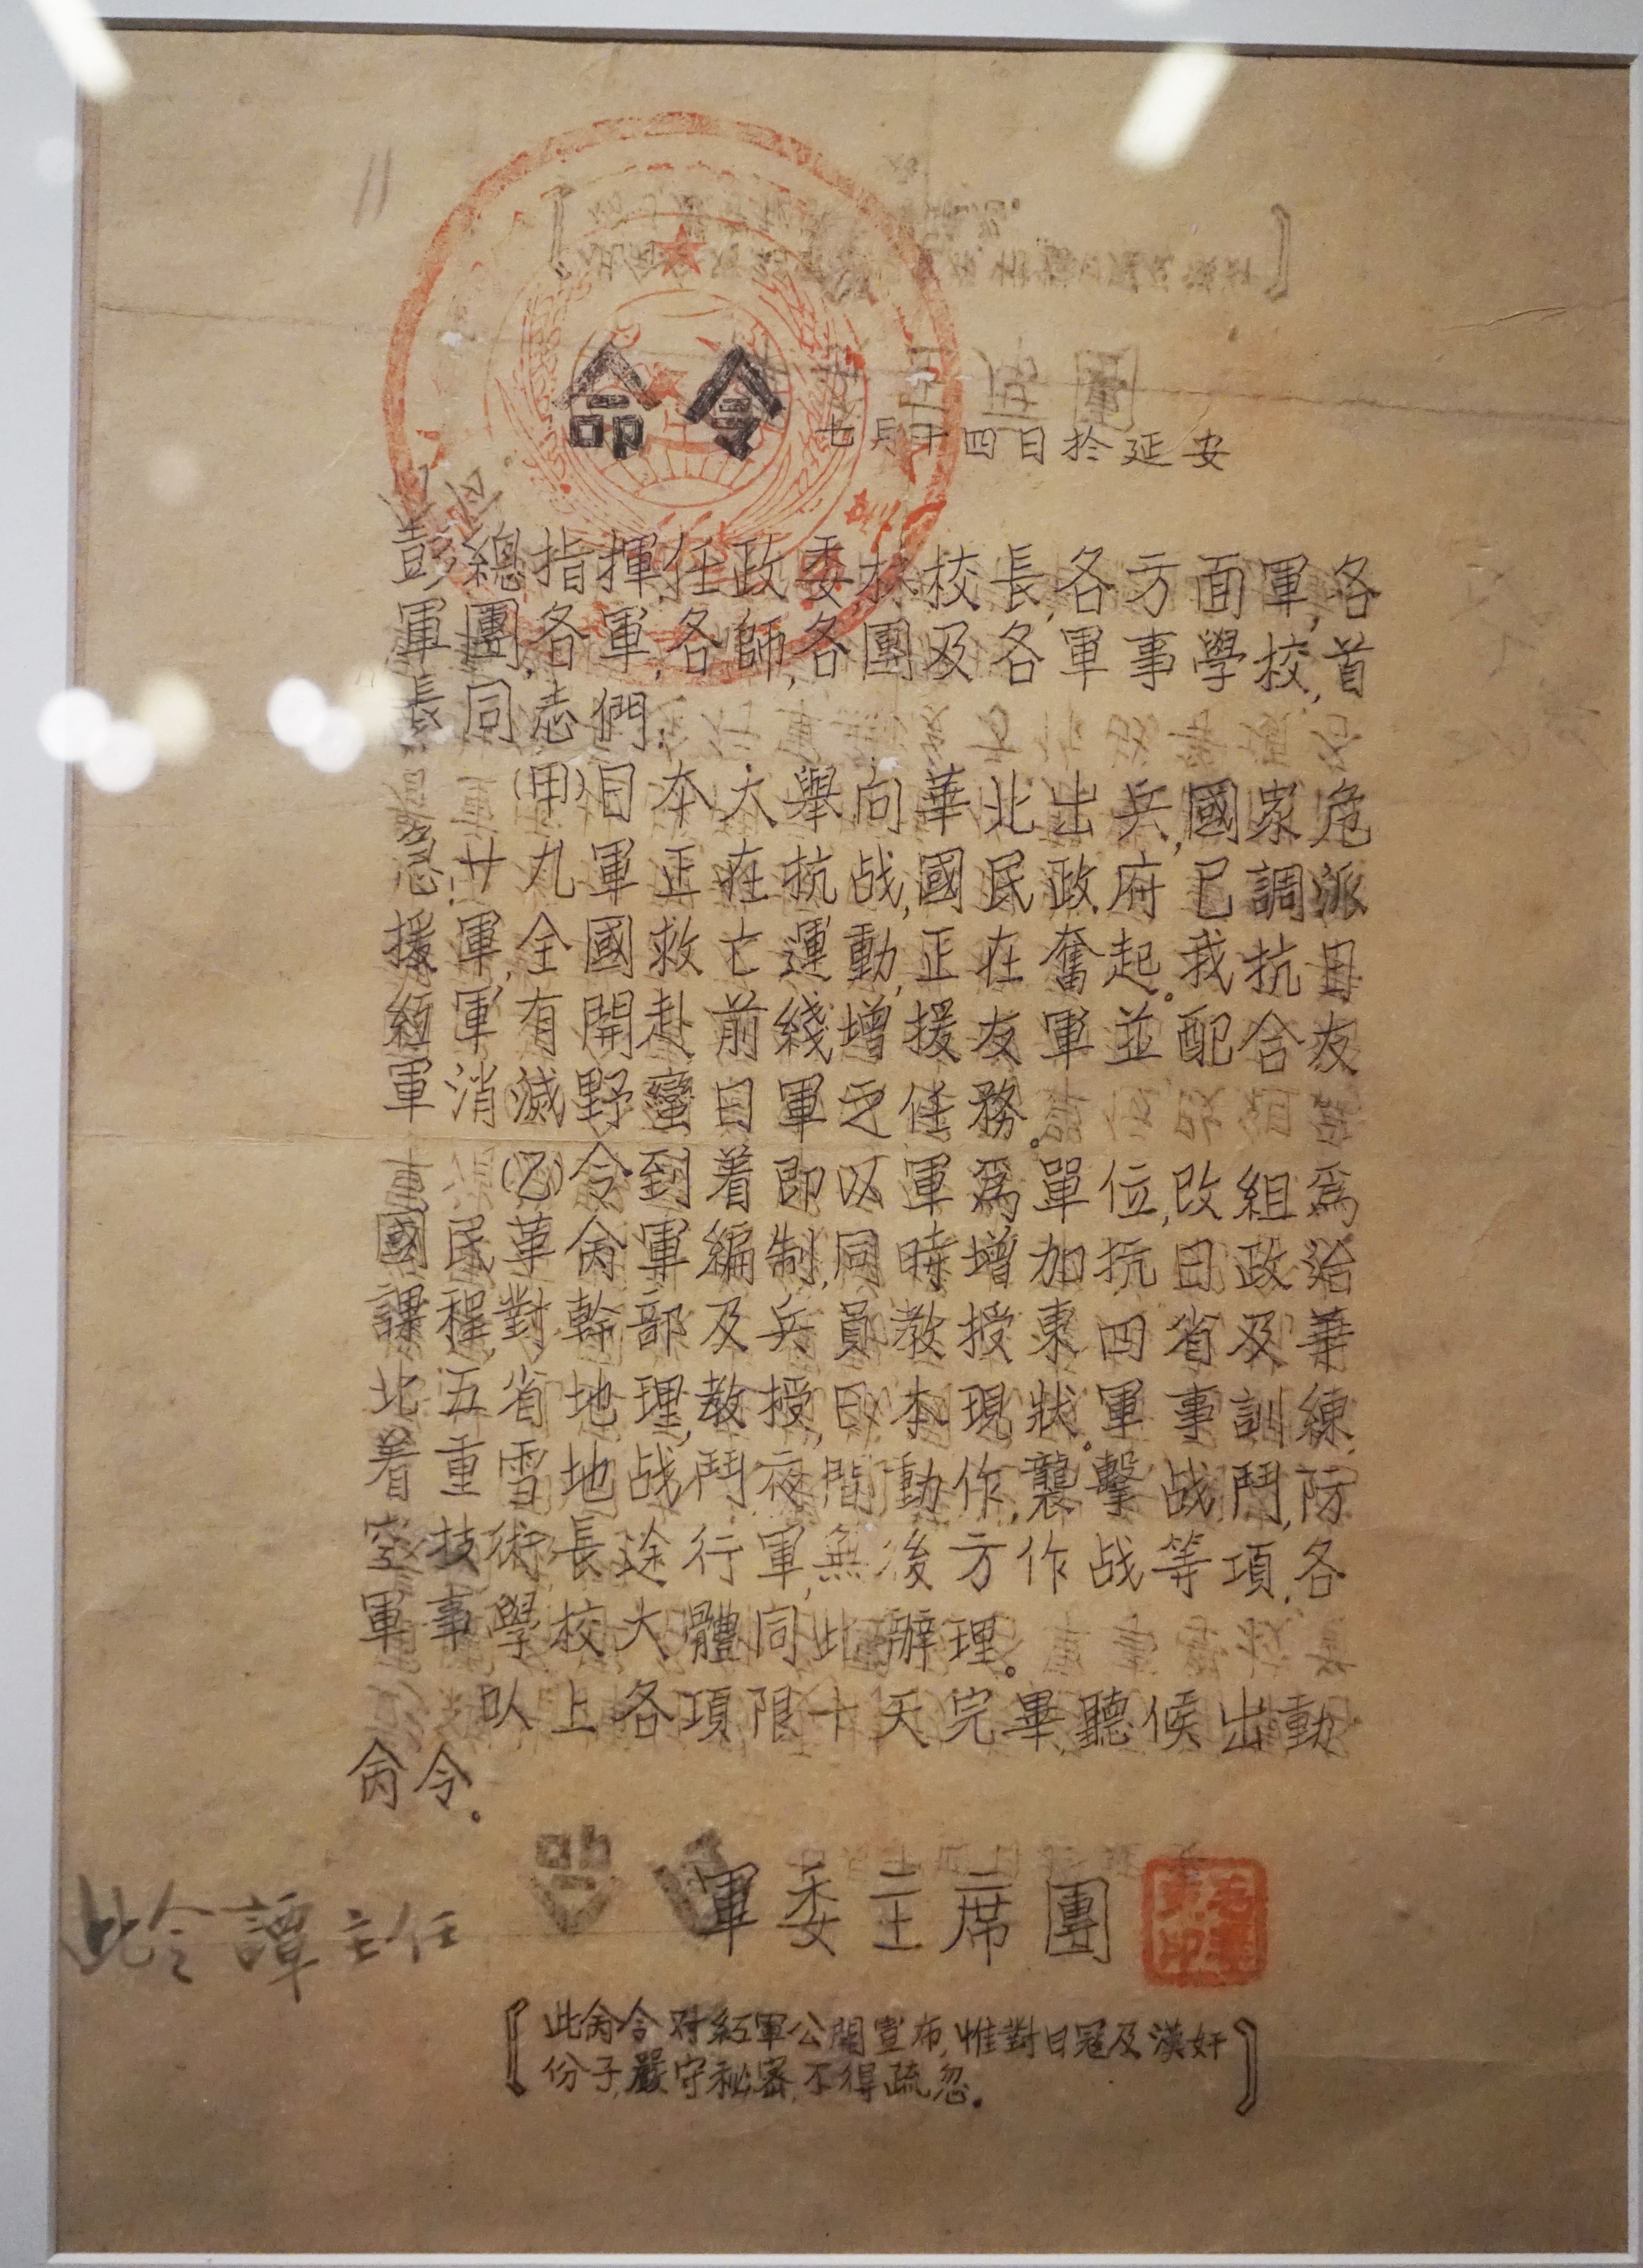 命令
七月十四日於延安
彭總指揮,任政委,林校長,各方面軍,各
軍團,各軍,各師,各團及各軍事學校,首
長同志們:
(甲)日本大舉向華北出兵,國家危
急.廿九軍正在抗战,國民政府已調派
援軍,全國救亡運動,正在奮起。我抗日
紅軍有開赴前綫增援友軍並配合友
軍消滅野蠻日軍之任務。
(乙)令到着即以軍爲單位,改組爲
國民革命軍編制,同時增加抗日政治
課程,對幹部及兵員教授東四省及華
北五省地理,教授日本現狀。軍事訓練
着重雪地战鬥,夜間動作,襲擊战鬥,防
空技術,長途行軍,無後方作战等項,各
軍事學校大體同此辦理。
以上各項限十天完畢,聽候出動
命令.
軍委主席團
此令譚主任
[此命令对紅軍公開宣布,惟對日寇及漢奸
份子,嚴守秘密,不得疏忽.]